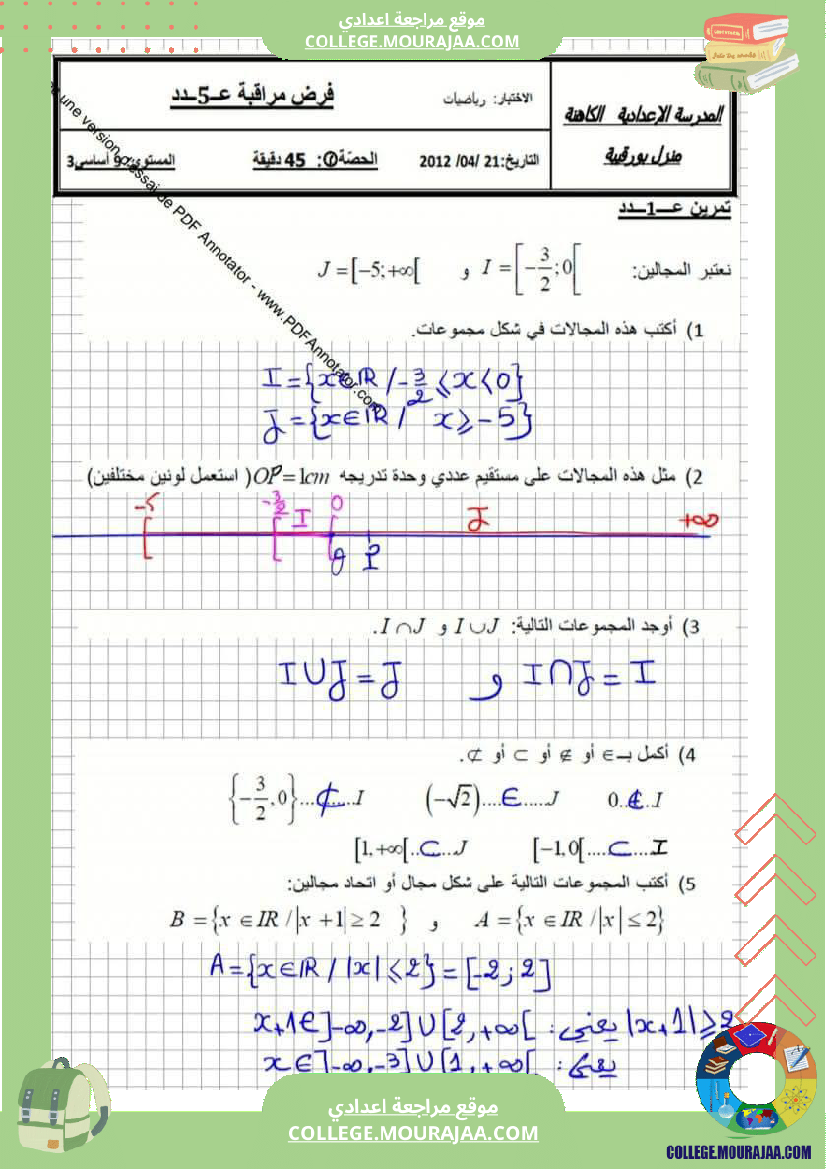 موقع مراجعة اعدادي
COLLEGE.MOURAJAA.COM
المدرسة الإعدادية الكاهنة
منزل بورقيبة
الاختبار: رياضيات
فرض مراقبة عـ5ـدد
التاريخ: 21 /04/ 2012
الحصّة: 45 دقيقة
المستوى: 9 أساسي3
une version d'essai de PDF Annotator - www.PDFAnnotator.com
تمرين عـ1ـدد
نعتبر المجالين: I = [-3/2 ; 0[ و J = [-5; +∞[
1) أكتب هذه المجالات في شكل مجموعات.
I = {x ∈ IR / -3/2 ⩽ x < 0}
J = {x ∈ IR / x ⩾ -5}
2) مثل هذه المجالات على مستقيم عددي وحدة تدريجه OP = 1cm (استعمل لونين مختلفين)
-5 -3/2 I 0 J +∞
0 P
3) أوجد المجموعات التالية: I ∪ J و I ∩ J.
I ∩ J = I و I ∪ J = J
4) أكمل بـ ∈ أو ∉ أو ⊂ أو ⊄.
0..∉..I (-√2)....∈.....J {-3/2, 0}...⊄....I
[-1, 0[....⊂....I [1, +∞[..⊂...J
5) أكتب المجموعات التالية على شكل مجال أو اتحاد مجالين:
A = {x ∈ IR / |x| ≤ 2} و B = {x ∈ IR / |x + 1| ≥ 2 }
A = {x ∈ IR / |x| ⩽ 2} = [-2 ; 2]
|x+1| ⩾ 2 يعني: x+1 ∈ ]-∞, -2] ∪ [2, +∞[
يعني: x ∈ ]-∞, -3] ∪ [1, +∞[
موقع مراجعة اعدادي
COLLEGE.MOURAJAA.COM
COLLEGE.MOURAJAA.COM